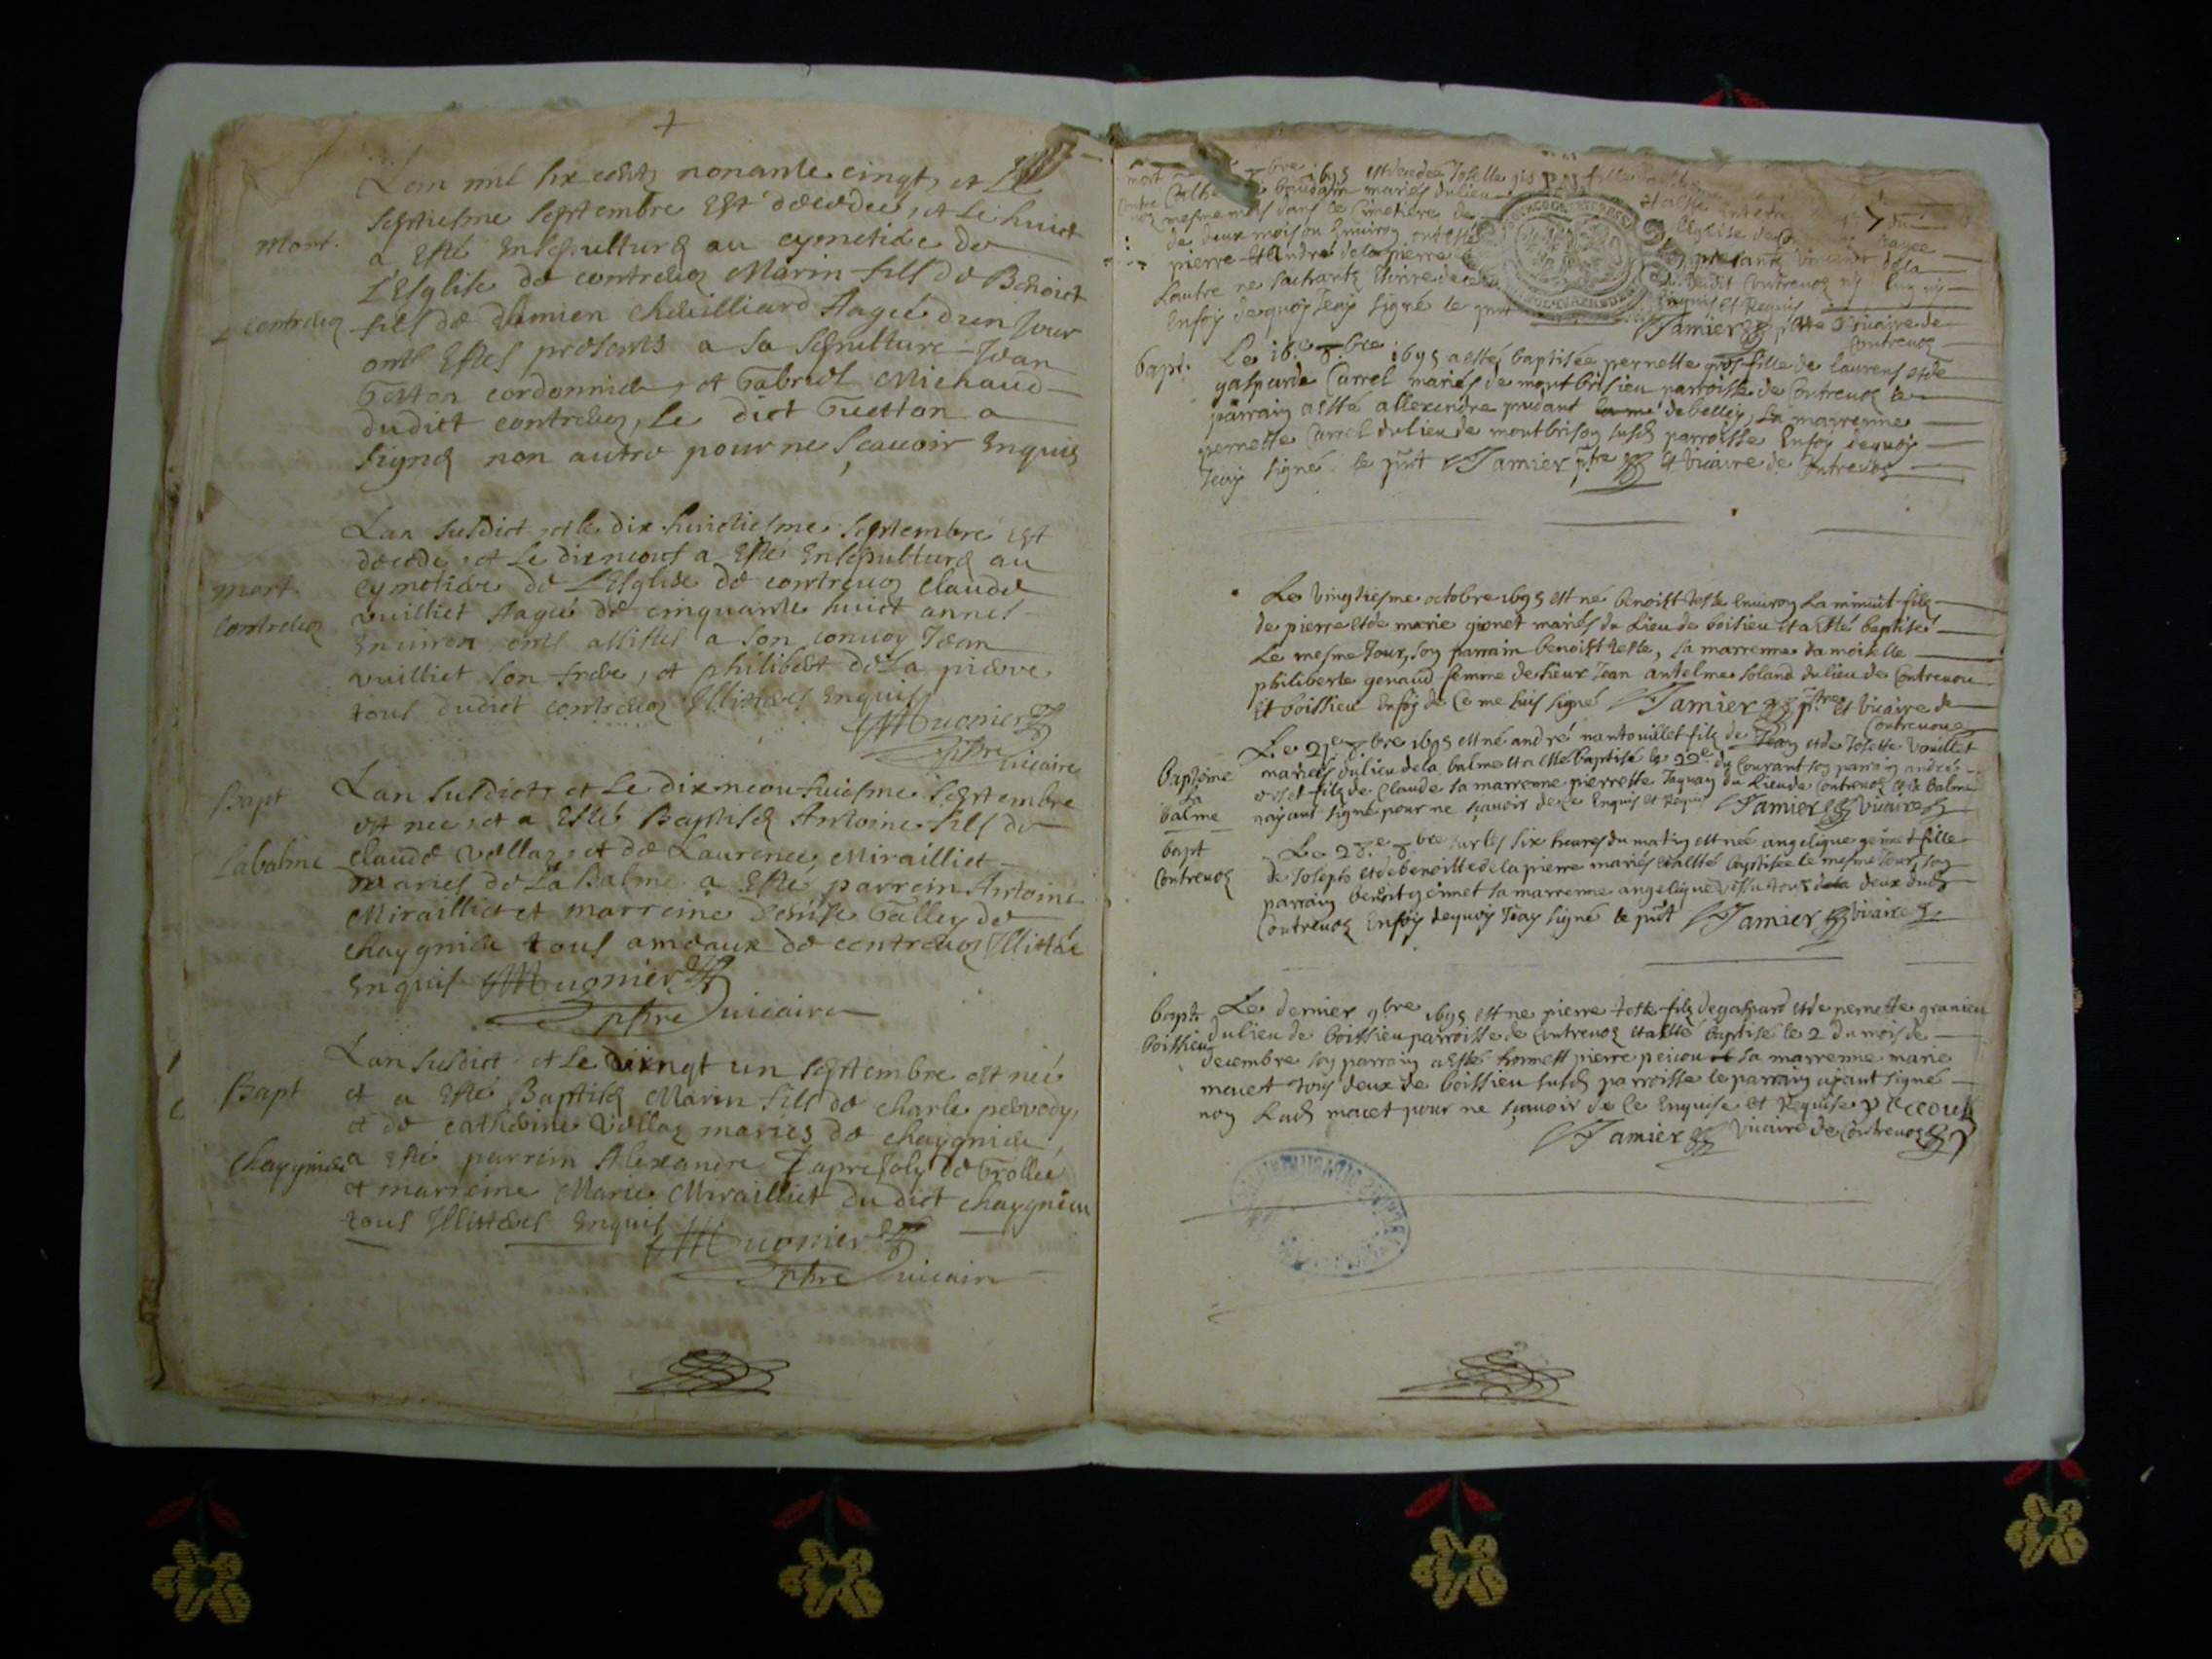 Lan mil six cents nonante cinqt, et Le
septiesme septembre est decedee, et Le huict
mort.
a esté ensepulturé au cymetiere de
L'Esglise de contrevoz Marin fils de Benoict
contrevoz
fils de Damien chevilliard Aagé dun jour
onts estes presents a sa sepulture Jean
cordonnier, et Gabriel Michaud
dudict contrevoz, Le dict a
signé non autre pour ne scavoir Enquis
Lan susdict et le dix huictiesme septembre est
decede, et Le dixneuf a esté ensepulturé au
mort.
cymetiere de L'Esglise de contrevoz claude
contrevoz
vuilliet Aagé de cinquante huict annes
environ onts assistes a son convoy Jean
vuilliet son frere, et philibert de La pierre
tous dudict contrevoz Illitteres Enquis
Mugnier
ptbre vicaire
Bapt
Lan susdict, et Le dixneoufuiesme septembre
est nee, et a esté Baptisé Antoine fils de
Labalme
claude vellaz, et de Laurence Mirailliet
maries de La Balme a esté parrein Antoine
Mirailliet et marreine Denise Galley de
chaygnieu tous ameaux de contrevoz Illittere
Enquis Mugnier
ptbre vicaire
Lan susdict et Le vingt un septembre est née
Bapt
et a esté Baptisé Marin fils de charle
et de catherine vellaz maries de chaygnieu
chaygnieu
a esté parrein Alexandre de Grollee
et marreine Marie Mirailliet du dict chaygnieu
tous Illitteres Enquis Mugnier
ptbre vicaire
7
mort
bre 1695 est decedée Josette
baudain mariés du lieu
mesme mois dans le Cimetiere de l'Eglise de
de deux mois ou Environ ont esté
pierre et André de la pierre presants vincent dela
Lautre ne sachants Ecrire de ce Enquis et Requis
Enfoy dequoy Jeay signé le pnt
Jamier ptre vicaire de
Contrevoz
bapt.
Le 16e 8.bre 1695 a esté baptisée pernette gros fille de laurens et de
gasparde Carrel mariés de montbrisieu parroisse de Contrevoz Le
parrain a esté allexendre prudant de belley, La marrenne
pernette Carrel du lieu de montbrison susd parroisse Enfoy dequoy
Jeay signé le pnt Jamier ptre et vicaire de Contrevoz
Le vingtiesme octobre 1695 est né benoist teste Environ La minuit fils
de pierre et de marie gionet mariés du Lieu de boisieu et a esté baptisé
Le mesme Jour, soy parrain benoist teste, sa marrenne damoiselle
philiberte genaud femme de sieur Jean antelme soland du lieu de Contrevou
Et boissieu Enfoy de ce me suis signé Jamier ptre et vicaire de
Contrevouz
Le 21e 8.bre 1695 est né andré nantouillet fils de Jean et de Josette vouillet
baptéme
mariés du lieu de la balme et a esté baptisé le 22e du Courant soy parrain andré
La
orset fils de Claude sa marrenne pierrette Jaquay du Lieu de Contrevoz et de balme
balme
nayant signé pour ne sçavoir de ce Enquis et Requis Jamier vicaire
bapt
Contrevoz
Le 28.e 8.bre sur les six heures du matin est née angelique gonnet fille
de Joseph et de benoitte de la pierre mariés et a esté baptisée le mesme Jour, soy
parrain benoit gonnet sa marrenne angelique tous deux dud
Contrevoz Enfoy dequoy Jeay signé le pnt Jamier vicaire
bapt.
boissieu
Le dernier 9bre 1695 est ne pierre teste fils de gaspard et de pernette granieu
du lieu de boissieu parroisse de Contrevoz et a esté baptisé le 2 du mois de
decembre soy parrain a esté honnest pierre peicou et sa marrenne marie
macet tous deux de boissieu susd parroisse le parrain ayant signé
non Lad macet pour ne sçavoir de ce Enquise et Requise peccoud
Jamier vicaire de Contrevoz